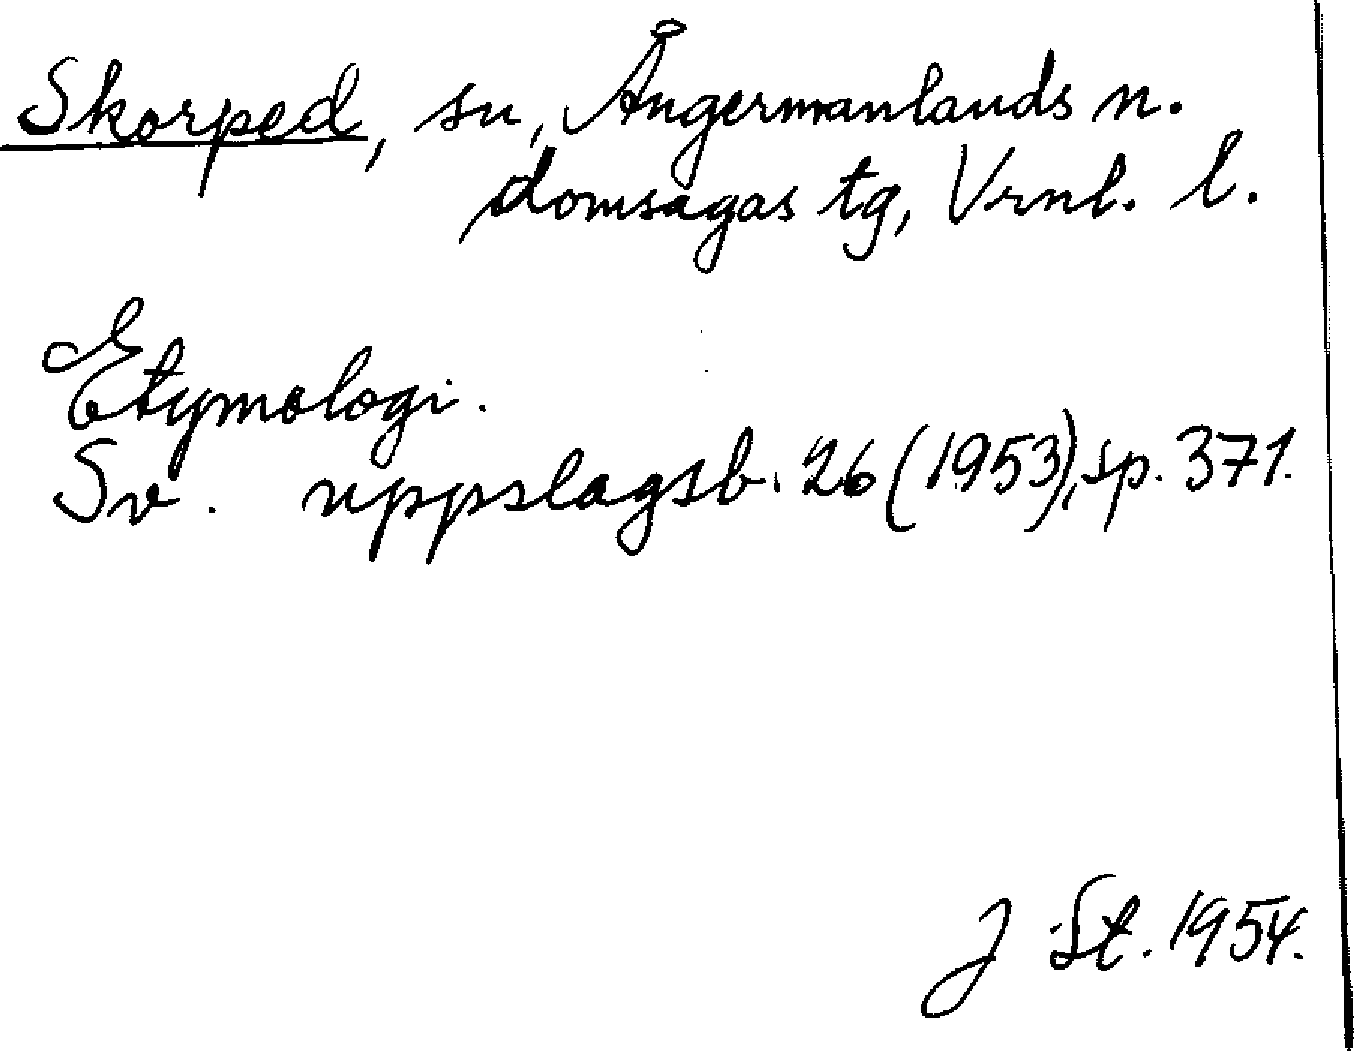 Skorped, sn, Ångermanlands n.
domsagas tg, Vrnl. l.
Etymologi.
Sv. uppslagsb. 26 (1953), sp. 371.
J St. 1954.